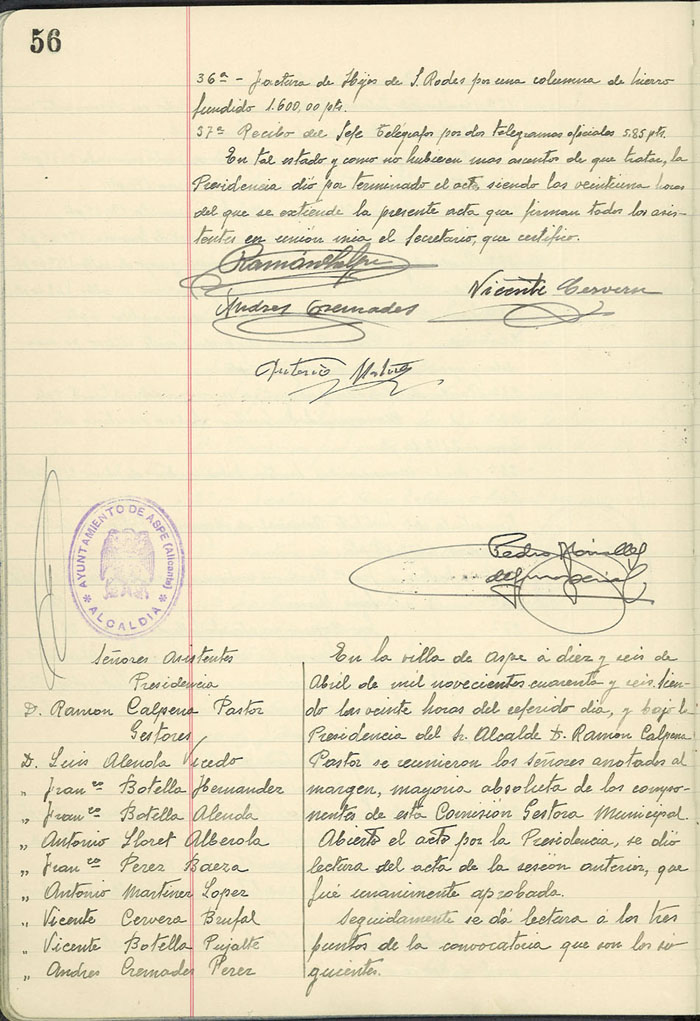 56
36ª - factura de Hijos de S. Rodes por una columna de hierro
fundido 1.600,00 pts.
37ª Recibo del Jefe Telégrafos por dos telegramas oficiales 5.85 pts.
En tal estado y como no hubieren mas asentos de que tratar, la
Presidencia dió por terminado el acto, siendo las veintiuna horas
del que se extiende la presente acta que firman todos los asis-
tentes en unión mia el Secretario, que certifico.
Ramón Calpe
Vicente Cervera
Andres Cremades
Antonio
Pedro
AYUNTAMIENTO DE ASPE (Alicante)
* ALCALDIA *
Señores Asistentes
Presidencia
D. Ramon Calpena Pastor
Gestores
D. Luis Alenda Vicedo
" Franco Botella Hernandez
" Franco Botella Alenda
" Antonio Lloret Alberola
" Franco Perez Baeza
" Antonio Martinez Lopez
" Vicente Cervera Brufal
" Vicente Botella Pujalte
" Andres Cremades Perez
En la villa de Aspe á diez y seis de
Abril de mil novecientos cuarenta y seis, sien-
do las veinte horas del referido dia, y bajo la
Presidencia del Sr. Alcalde D. Ramon Calpena
Pastor se reunieron los señores anotados al
margen, mayoria absoluta de los compo-
nentes de esta Comisión Gestora Municipal.
Abierto el acto por la Presidencia, se dió
lectura del acta de la sesión anterior, que
fué unanimente aprobada.
Seguidamente se dá lectura á los tres
puntos de la convocatoria que son los si-
guientes.